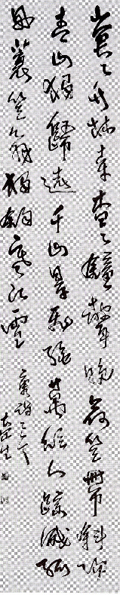 蒼々竹林寺杳々鐘聲晚荷笠帶斜陽
青山獨歸遠千山鳥飛絕萬徑人踪滅孤
舟蓑笠翁獨釣寒江雪
唐詩二首